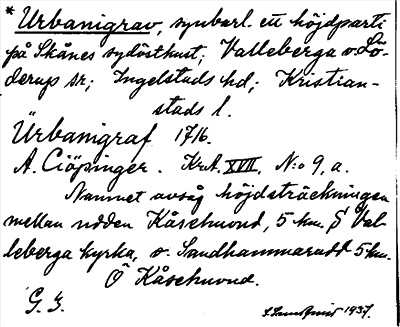 * Urbanigrav, synbarl. ett höjdparti
på Skånes sydöstkust; Valleberga o. Lö-
derups sr; Ingelstads hd; Kristian-
stads l.
Ürbanigraf 1716.
A. Ciöpinger. Kr.A. XVII, N:o 9, a.
Namnet avsåg höjdsträckningen
mellan udden Kåsehuvud, 5 km. S Val-
leberga kyrka, o. Sandhammaradd 5 km.
Ö Kåsehuvud.
G. G.
1937.